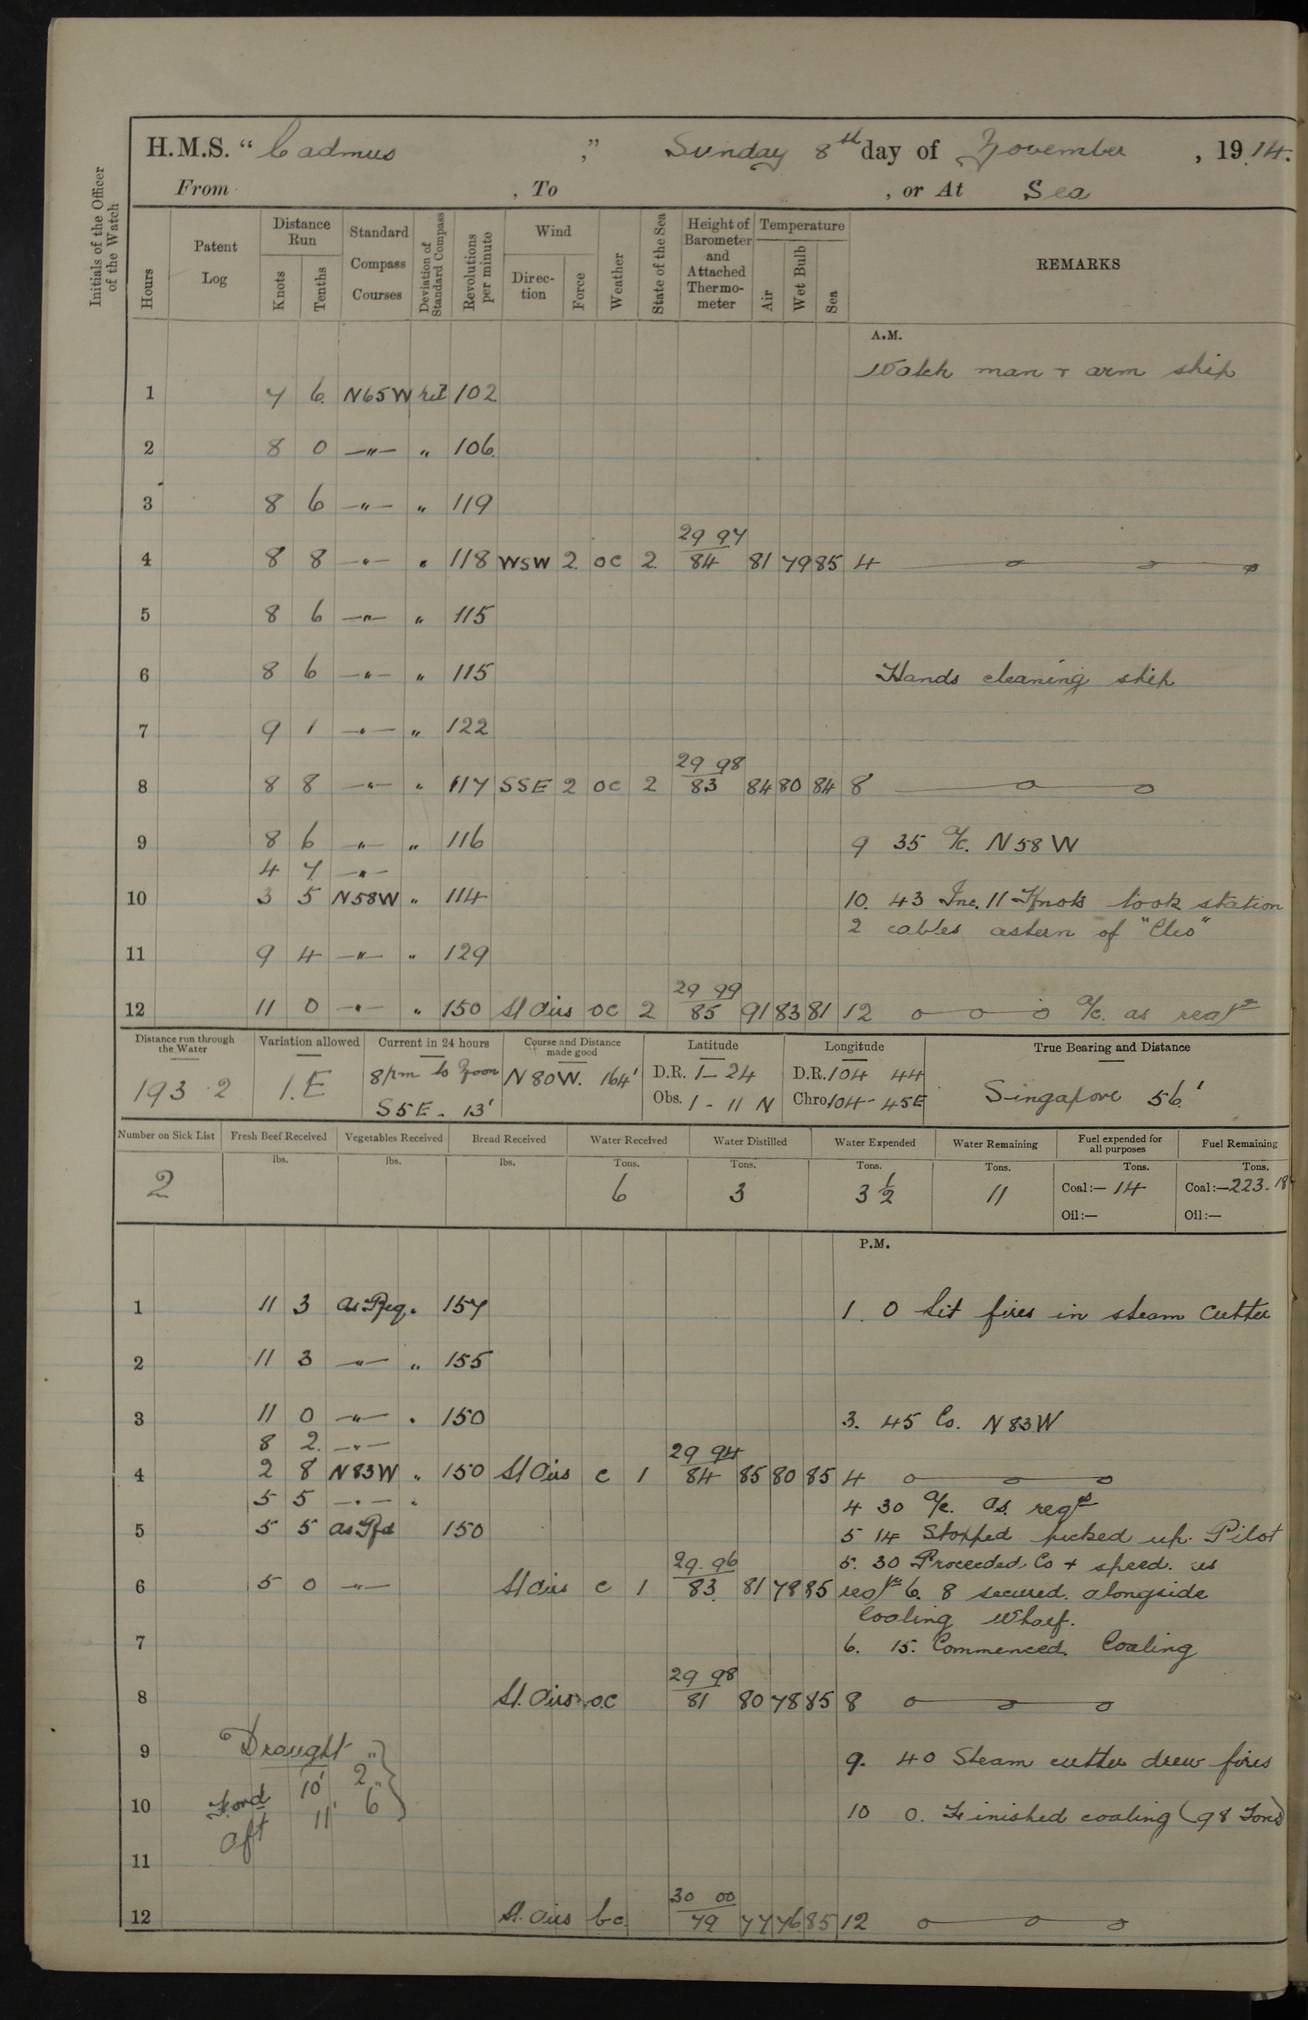 H.M.S. "Cadmus ," Sunday 8th day of November , 1914.
From , To , or At Sea
Initials of the Officer of the Watch
Hours
Patent Log
Distance Run
Knots
Tenths
Standard Compass Courses
Deviation of Standard Compass
Revolutions per minute
Wind
Direction
Force
Weather
State of the Sea
Height of Barometer and Attached Thermometer
Temperature
Air
Wet Bulb
Sea
REMARKS
A.M.
Watch man + arm ship
1 7 6 N65W 102
2 8 0 —"— " 106
3 8 6 —"— " 119
29 97
4 8 8 —"— " 118 WSW 2 oc 2 84 81 79 85 4
5 8 6 —"— " 115
6 8 6 —"— " 115 Hands cleaning ship
7 9 1 —"— " 122
29 98
8 8 8 —"— " 117 SSE 2 oc 2 83 84 80 84 8
9 8 6 —"— " 116 9 35 A/c. N58W
4 7 —"—
10 3 5 N58W " 114 10. 43 Inc. 11 Knots took station
2 cables astern of "Clio"
11 9 4 —"— " 129
29 99
12 11 0 —"— " 150 Lt airs oc 2 85 91 83 81 12 A/c. as reqd
Distance run through the Water
193.2
Variation allowed
1.E
Current in 24 hours
8pm to Noon
S5E - 13'
Course and Distance made good
N80W. 164'
Latitude
D.R. 1-24
Obs. 1 - 11 N
Longitude
D.R. 104 44
Chro. 104 - 45E
True Bearing and Distance
Singapore 56'
Number on Sick List
2
Fresh Beef Received
lbs.
Vegetables Received
lbs.
Bread Received
lbs.
Water Received
Tons.
6
Water Distilled
Tons.
3
Water Expended
Tons.
3 1/2
Water Remaining
Tons.
11
Fuel expended for all purposes
Tons.
Coal:— 14
Oil:—
Fuel Remaining
Tons.
Coal:— 223.
Oil:—
P.M.
1 11 3 as Req. 157 1. 0 Lit fires in steam cutter
2 11 3 —"— " 155
3 11 0 —"— " 150 3. 45 Co. N83W
8 2 —"—
29 94
4 2 8 N83W " 150 Lt Airs c 1 84 85 80 85 4
5 5 —"— " 4 30 A/c. as. reqd
5 5 5 as Rqd 150 5 14 Stopped picked up Pilot
29.96 5. 30 Proceeded Co + speed as
6 5 0 —"— Lt airs c 1 83 81 78 85 reqd 6. 8 secured alongside
Coaling Wharf.
7 6. 15. Commenced Coaling
29 98
8 Lt. Airs oc 81 80 78 85 8
Draught
9 9. 40 Steam cutter drew fires
Ford 10' 2"
10 10 0. Finished coaling (98 Tons)
Aft 11' 6"
11
30 00
12 Lt. airs bc 79 77 76 85 12